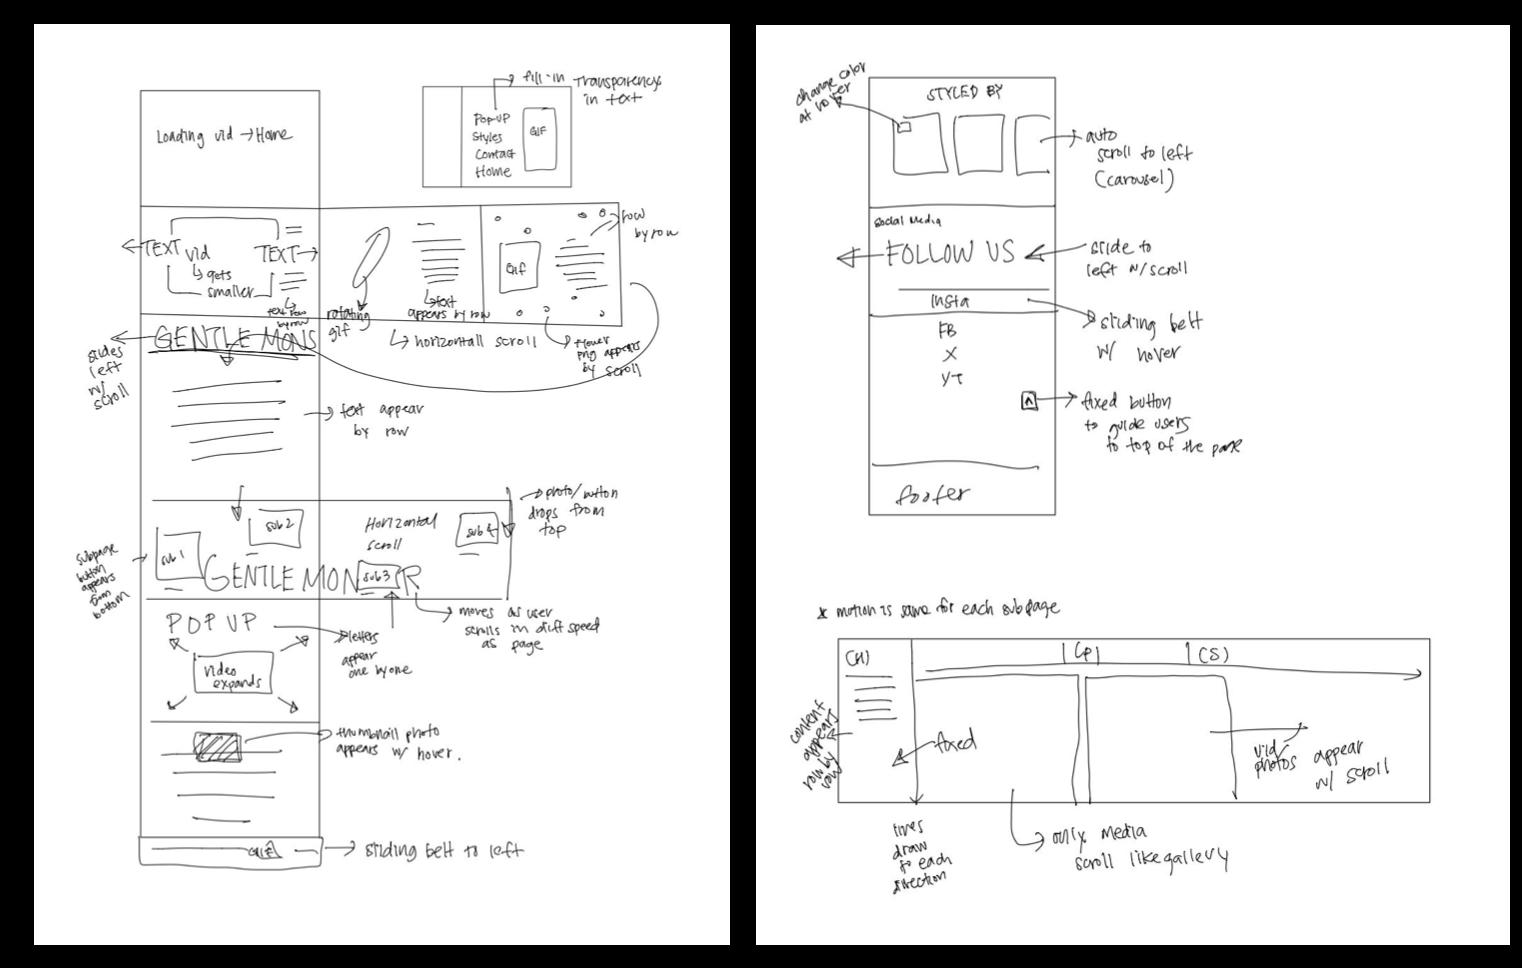 Loading vid → Home
fill-in transparency
in text
Pop-UP
Styles
Contact
Home
GIF
TEXT
vid
gets
smaller
TEXT
text row
by row
rotating
gif
text
appears by row
horizontall scroll
Gif
row
by row
flower
png appears
by scroll
GENTLE MONS
slides
left
w/
scroll
text appear
by row
photo/button
drops from
top
sub 1
sub 2
Horizontal
scroll
sub 3
sub 4
GENTLE MON R
subpage
button
appears
from
bottom
moves as user
scrolls in diff speed
as page
POP UP
letters
appear
one by one
video
expands
thumbnail photo
appears w/ hover.
sliding belt to left
change color
at hover
STYLED BY
auto
scroll to left
(carousel)
Social Media
FOLLOW US
slide to
left w/scroll
Insta
sliding belt
w/ hover
FB
X
YT
fixed button
to guide users
to top of the page
footer
* motion is same for each subpage
(H)
(P)
(S)
content
appears
row by
row
fixed
vid/
photos appear
w/ scroll
lines
draw
to each
direction
only media
scroll like gallery